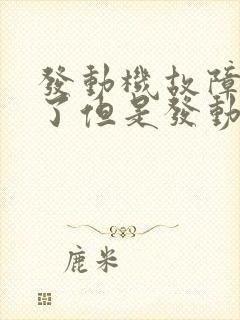 發動機故障
了但是發動
鹿米